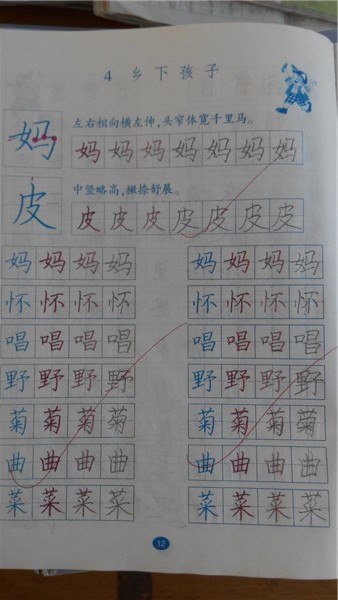 4 乡下孩子
左右相向横左伸，头窄体宽千里马。
妈 妈 妈 妈 妈 妈 妈 妈
中竖略高，撇捺舒展。
皮 皮 皮 皮 皮 皮 皮 皮
妈 妈 妈 妈 妈 妈 妈 妈
怀 怀 怀 怀 怀 怀 怀 怀
唱 唱 唱 唱 唱 唱 唱 唱
野 野 野 野 野 野 野 野
菊 菊 菊 菊 菊 菊 菊 菊
曲 曲 曲 曲 曲 曲 曲 曲
菜 菜 菜 菜 菜 菜 菜 菜
12